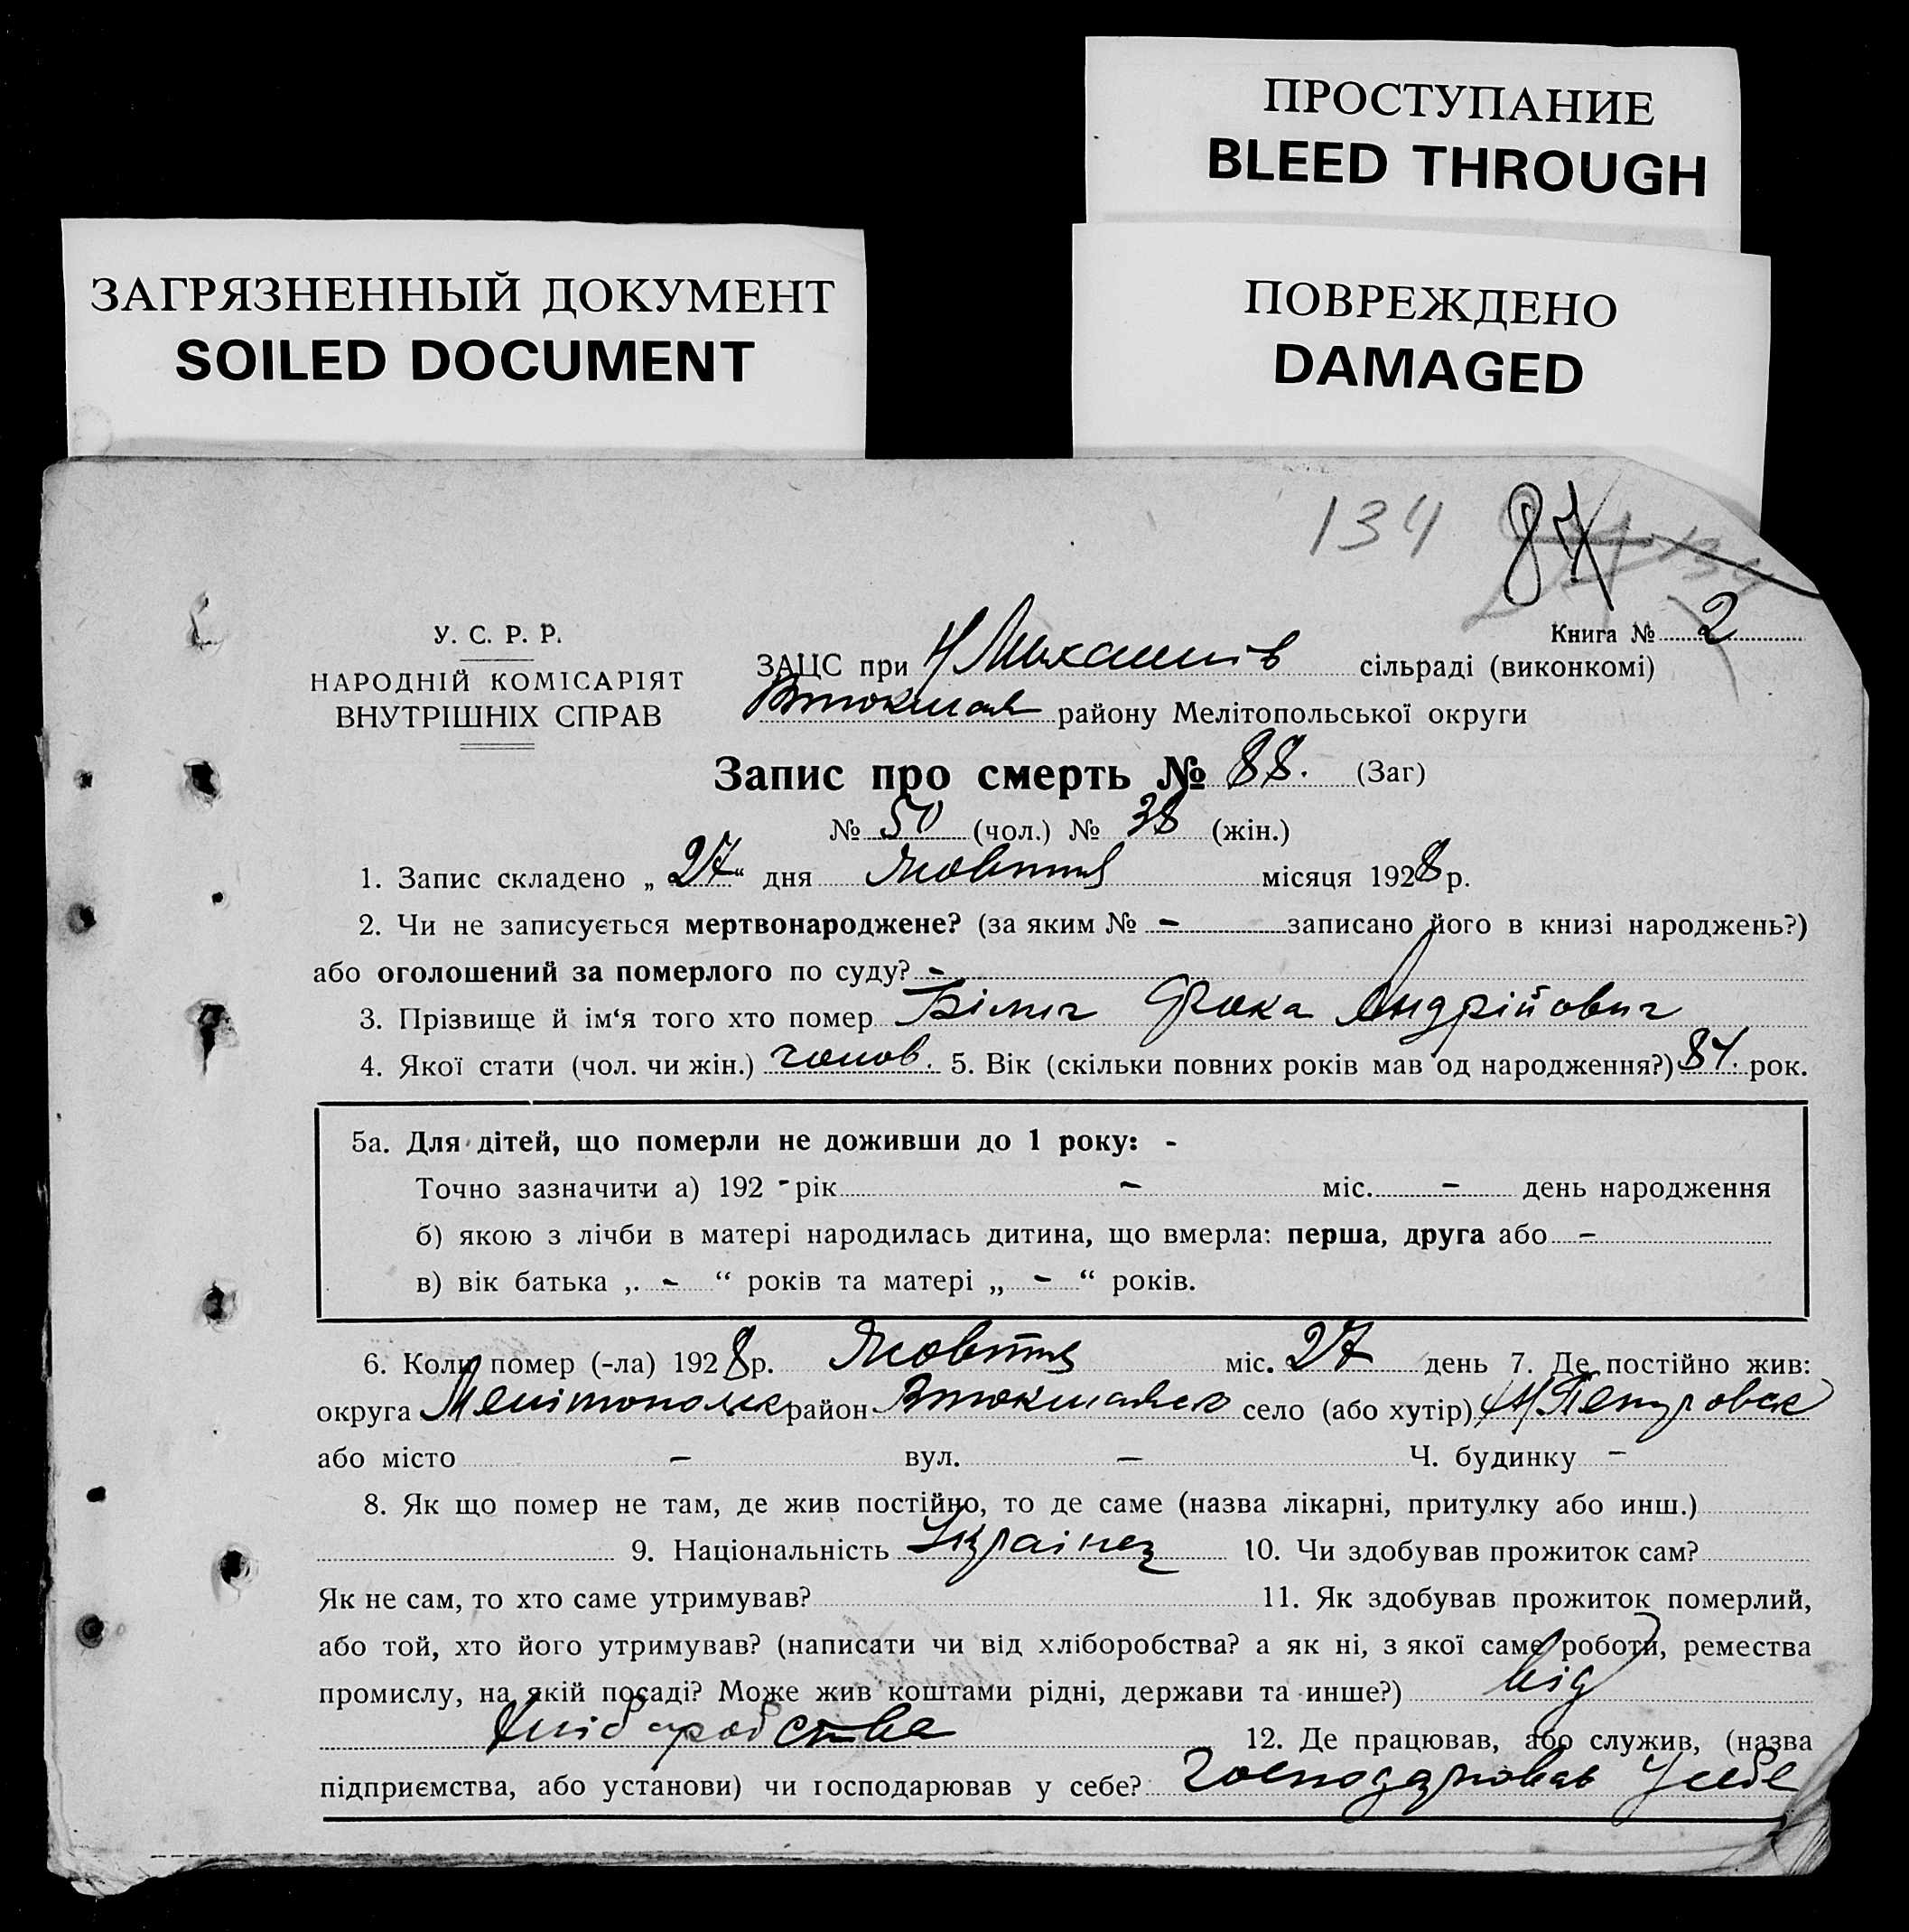 ПРОСТУПАНИЕ
BLEED THROUGH
ЗАГРЯЗНЕННЫЙ ДОКУМЕНТ
SOILED DOCUMENT
ПОВРЕЖДЕНО
DAMAGED
134 87
Книга № 2
У. С. Р. Р.
НАРОДНІЙ КОМІСАРІЯТ
ВНУТРІШНІХ СПРАВ
ЗАЦС при Н Михайлів сільраді (виконкомі)
Втокмак району Мелітопольської округи
Запис про смерть № 88. (Заг)
№ 50 (чол.) № 38 (жін.)
1. Запис складено „ 27 “ дня Жовтня місяця 1928 р.
2. Чи не записується мертвонароджене? (за яким № - записано його в книзі народжень?)
або оголошений за померлого по суду? -
3. Прізвище й ім‘я того хто помер Білич Фока Андрійович
4. Якої стати (чол. чи жін.) чолов. 5. Вік (скільки повних років мав од народження?) 84. рок.
5а. Для дітей, що померли не доживши до 1 року: -
Точно зазначити а) 192 - рік - міс. - день народження
б) якою з лічби в матері народилась дитина, що вмерла: перша, друга або -
в) вік батька „ - “ років та матері „ - “ років.
6. Коли помер (-ла) 1928 р. Жовтня міс. 27 день 7. Де постійно жив:
округа Мелітопольск район Втокмакск село (або хутір)
або місто - вул. - Ч. будинку -
8. Як що помер не там, де жив постійно, то де саме (назва лікарні, притулку або инш.)
9. Національність Українец 10. Чи здобував прожиток сам?
Як не сам, то хто саме утримував? 11. Як здобував прожиток померлий,
або той, хто його утримував? (написати чи від хліборобства? а як ні, з якої саме роботи, ремества
промислу, на якій посаді? Може жив коштами рідні, держави та инше?) від
хліборобства 12. Де працював, або служив, (назва
підприємства, або установи) чи господарював у себе? Господарював у себе